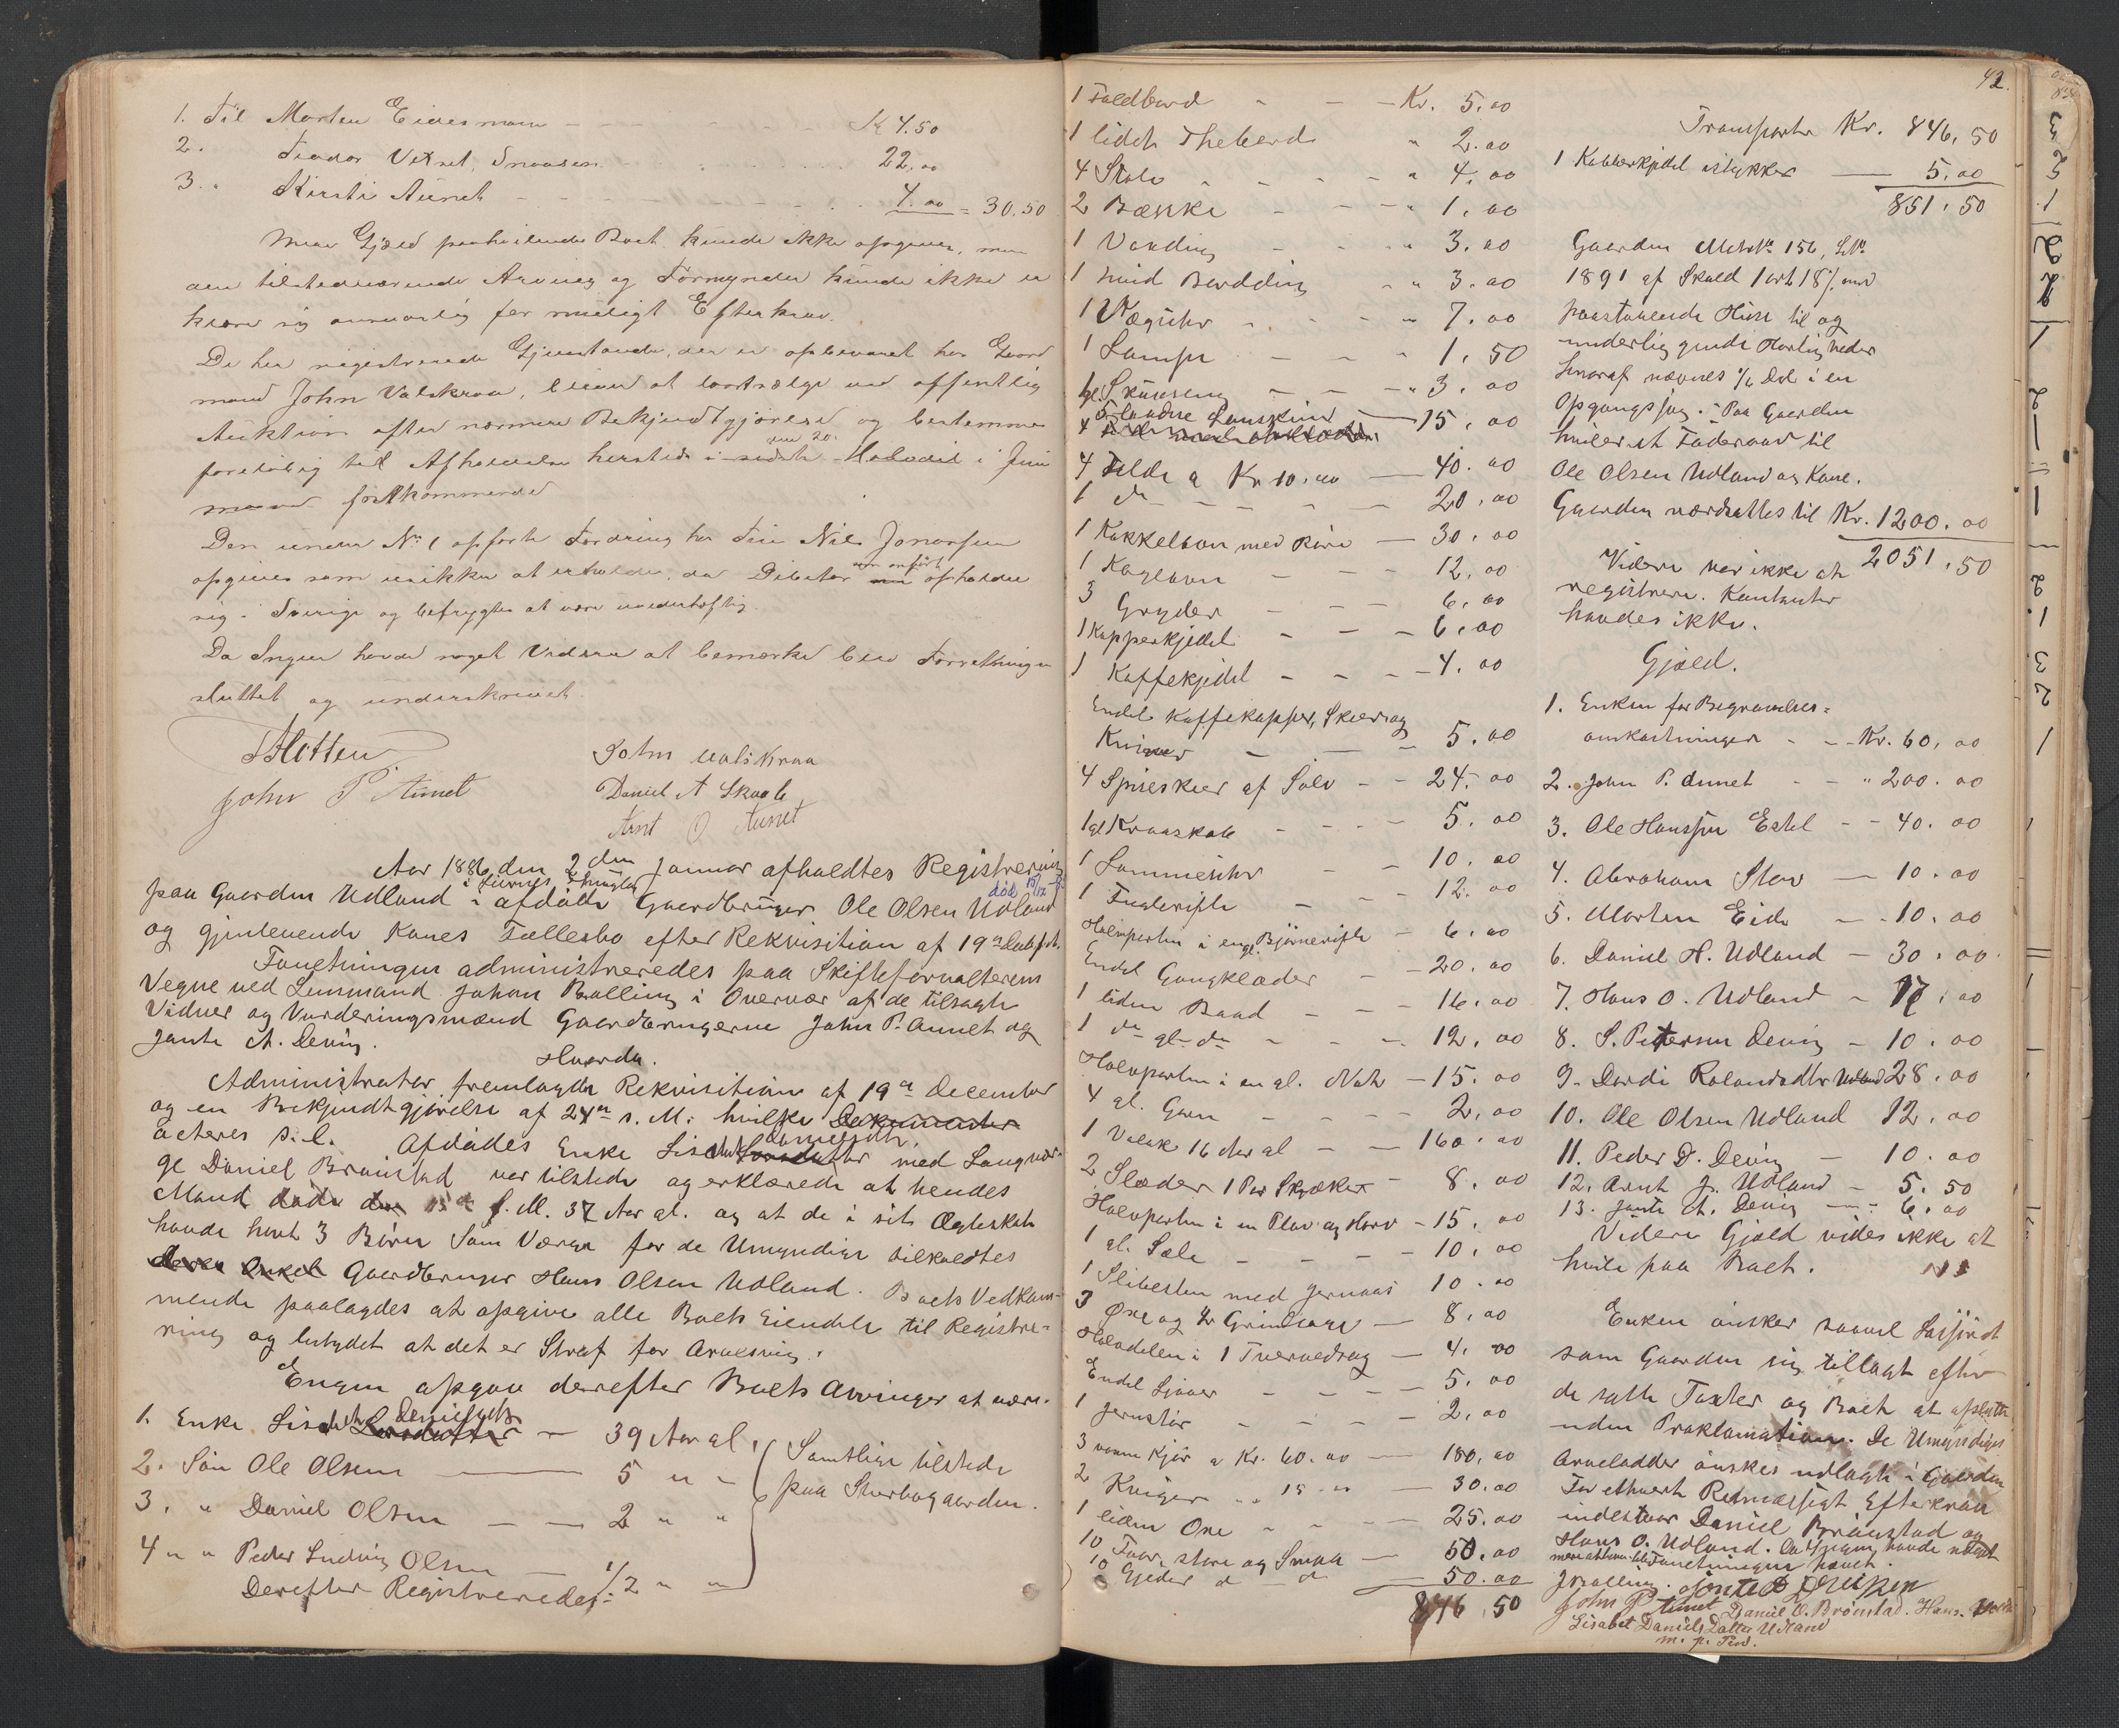 1. Til Morten Eidesmom - - - K 4.50
2. Teodor Vitset, Snaasen 22.00
3. " Kirsti Aunet - - - 4.00 = 30.50
Mere Gjæld paahvilende Boet kunde ikke opgives, men
den tilstedeværende Arving og Formynder kunde ikke er
klære sig ansvarlig for muligt Efterkrav.
De her registrerede Gjenstande, der er opbevaret hos Gaard
mand John Valskraa, bliver at bortsælge ved offentlig
Auktion efter nærmere Bekjendtgjørelse og bestemmes
foreløbig til Afholdelse hersteds i sidste Halvdel i Juni
maaned førstkommende
Den under No 1 opførte Fordring hos Nils Jonassen
opgives som usikker at erholde, da Debitor som anført opholder
sig i Sverige og befrygtes at være uvederhæftig.
Da Ingen havde noget Videre at bemærke blev Forretningen
sluttet og underskrevet.
John Valskraa
John P Aunet
Daniel A Skaale
Arnt O Aunet
Aar 1886 den 2den Januar afholdtes Registrering
paa Gaarden Udland i afdøde Gaardbruger Ole Olsen Udland
død 15/12
og gjenlevende Kones Fællesbo efter Rekvisition af 19de
Forretningen administreredes paa Skifteforvalterens
Vegne ved Lensmand Johan Balling i Overvær af de tilsagte
Vidner og Vurderingsmænd Gaardbrugerne John P. Aunet og
Jonte A. Devig.
Hvorda.
Administrator fremlagde Rekvisition af 19de December
og en Bekjendtgjørelse af 24de s. M. hvilke Dokumenter
acteres s. l. Afdødes Enke Lisabet Danielsdtr. med Laugvær-
ge Daniel Brønstad var tilstede og erklærede at hendes
Mand døde den 15de f. M. 37 Aar gl. og at de i sit Ægteskab
havde havt 3 Børn Som Værge for de Umyndige tilkaldtes
deres Onkel Gaardbruger Hans Olsen Udland. Boets Vedkom-
mende paalagdes at opgive alle Boets Eiendele til Registre-
ring og betydet at det er Straf for Arvesvig.
Enken opgav derefter Boets Arvinger at være.
1. Enke Lisabet Danielsdtr — 39 Aar gl.
2. Søn Ole Olsen — 5 " "
3. " Daniel Olsen — — 2 " "
4 " " Peder Ludvig Olsen — 1/2 " "
Samtlige tilstede
paa Sterbogaarden.
Derefter Registreredes:
42.
1 Foldbord - - - Kr. 5.00
1 lidet Thebord " 2.00
4 Stole - - - " 4.00
2 Bænke - - - " 1.00
1 Vanding - - " 3.00
1 hvid Bordding - " 3.00
1 Væguhr - - - " 7.00
1 Lampe - - " 1.50
1 gl. Skuvseng - - " 3.00
5 laadne Saueskind — 15.00
4 Felde a Kr 10.00 — 40.00
1 do - - - 20.00
1 Kakkelovn med Rør — 30.00
1 Kogeovn - - 12.00
3 Gryder - - - 6.00
1 Kopperkjedel - - - 6.00
1 Kaffekjedel - - - 4.00
Endel Kaffekopper, Skeer og
Kniver — — 5.00
4 Spiseskeer af Sølv - - 24.00
1 gl. Kraaskab - - - 5.00
1 Lommeuhr - - 10.00
1 Fuglerifle - - 12.00
Halvparten i en gl. Bjørnerifle - 6.00
Endel Gangklæder - - 20.00
1 liden Baad - - 16.00
1 do gl. do - - 12.00
Halvparten i en gl. Not - 15.00
4 gl. Garn - - - - 2.00
1 Valak 16 Aar gl — - 160.00
2 Slæder 1 Par Skjæker - 8.00
Halvparten i en Plov og Harv - 15.00
1 gl. Sæle - - - - 10.00
1 Slibesten med Jernaas 10.00
3 Øxe og 2 Grindsage — 8.00
Halvdelen i 1 Tverredrag — 4.00
Endel Ljaaer - - - - 5.00
1 Jernstør - - - - 2.00
3 vaarne Kjør a Kr. 60.00 — 180.00
2 Kviger " " 15.00 — 30.00
1 liden Oxe - - - - 25.00
10 Faar, store og Smaa — 50.00
10 Gjeder do - do 50.00
846.50
Transport Kr. 846.50
1 Kobberkjedel istykker — 5.00
851.50
Gaarden Matr No 156, LNo
1891 af Skyld 1 ort 18 / med
paastaaende Huse til og
underliggende Herligheder
hvoraf nævnes 1/6 Del i en
Opgangssag. - Paa Gaarden
hviler et Føderaad til
Ole Olsen Udland og Kone.
Gaarden værdsattes til Kr. 1200.00
2051.50
Videre var ikke at
registrere. Kontanter
havdes ikke.
Gjæld.
1. Enken for Begravelses=
omkostninger - - Kr. 60.00
2. John P. Aunet - - " 200.00
3. Ole Hanssen Estil - - 40.00
4. Abraham Stav — 10.00
5. Morten Eide — - 10.00
6. Daniel H. Udland — 30.00
7. Hans O. Udland — 17.00
8. S. Petersen Devig — 10.00
9. Dordi Rolandsdtr Udland 28.00
10. Ole Olsen Udland 12.00
11. Peder D. Devig — 10.00
12. Arnt J. Udland — 5.50
13. Jonte A. Devig — - 6.00
Videre Gjæld vides ikke at
hvile paa Boet.
Enken ønsker saavel Løsøret
som Gaarden sig tillagt efter
de satte Taxter og Boet at afslutte
uden Proklamation. De Umyndiges
Arvelodder ønskes udlagt i Gaarden
For ethvert Retmæssigt Efterkrav
indestaar Daniel Brønstad og
Hans O. Udland. Da Ingen havde noget
mere at bemærke Forretningen hævet.
JBalling. Jonte A Devigen
John P Aunet Daniel O. Brønstad. Hans.
Lisabet Daniels Datter Udland
m. p. Pen.